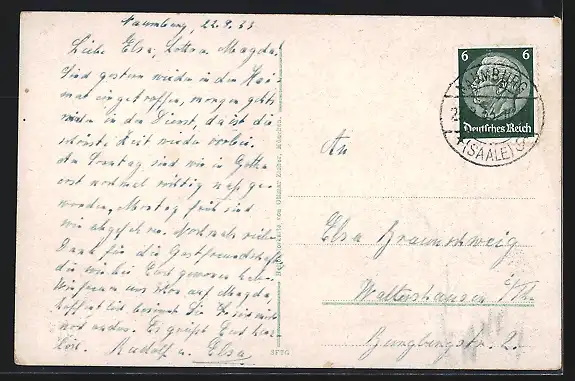 Naumburg, 22.9.33
Liebe Elsa, Lotte u. Magda!
Sind gestern wieder in der Hei-
mat eingetroffen, morgen gehts
wieder in den Dienst, da ist die
schönste Zeit wieder vorbei.
Am Sonntag sind wir in Gotha
erst nochmal richtig naß ge-
worden, Montag früh sind
wir abgefahren. Nochmals vielen
Dank für die Gastfreundschaft
die wir bei Euch genossen haben.
Wir freuen uns schon auf Magda,
hoffentlich besinnt sie sich nicht
noch anders. Es grüßt Euch herz-
lichst Rudolf u. Elsa
6 6
Deutsches Reich
NAUMBURG
(SAALE)
An
Elsa Braunschweig
Waltershausen i/Th.
Burgbergstr. 2.